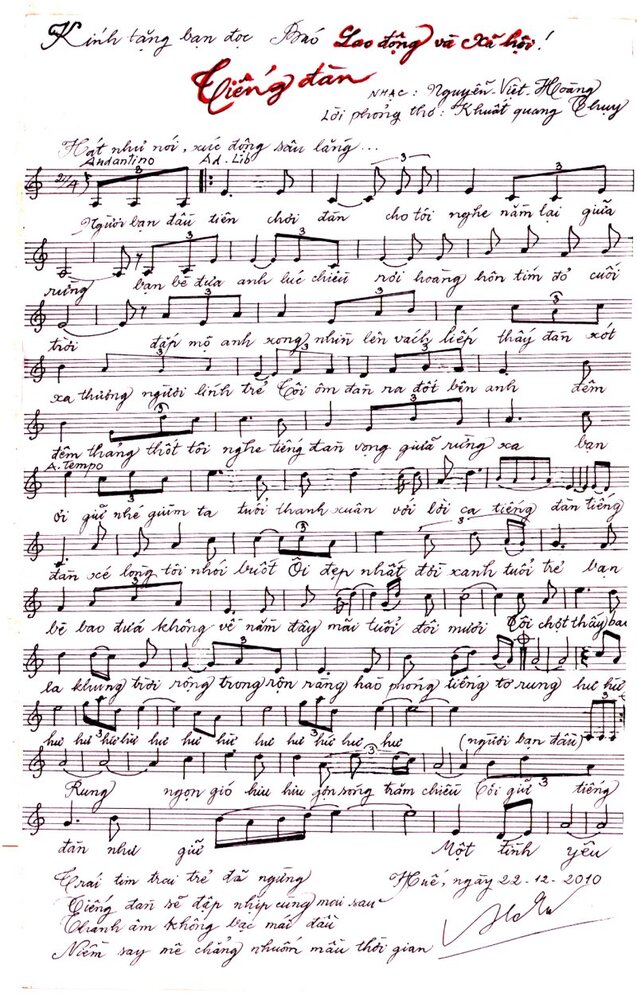 Kính tặng bạn đọc Báo Lao động và Xã hội!
Tiếng đàn
NHẠC: Nguyễn Việt Hoàng
Lời phỏng thơ: Khuất quang Thụy
Hát như nói, xúc động sâu lắng...
Andantino Ad. Lib
2/4 3 3
Người bạn đầu tiên chơi đàn cho tôi nghe nằm lại giữa
3
rừng bạn bè đưa anh lúc chiều rơi hoàng hôn tím đỏ cuối
3 3 3
trời đắp mộ anh xong nhìn lên vách liếp thấy đàn xót
3 3 3
xa thương người lính trẻ Tôi ôm đàn ra đốt bên anh đêm
3 3
đêm thảng thốt tôi nghe tiếng đàn vọng giữa rừng xa bạn
A. Tempo
ơi giữ nhé giùm ta tuổi thanh xuân với lời ca tiếng đàn tiếng
3 3
đàn xé lòng tôi nhói buốt Ôi đẹp nhất đời xanh tuổi trẻ bạn
3
bè bao đứa không về nằm đây mãi tuổi đôi mươi Tôi chợt thấy bao
3
la khung trời rộng trong rộn ràng hào phóng tiếng tơ rung hư hư
3
hư hư hư hư hư hư hư hư hư hư hư hư (người bạn đầu)
3 3
Rừng ngọn gió hiu hiu gợn sóng trăm chiều Tôi giữ tiếng
đàn như giữ Một tình yêu
Trái tim trai trẻ đã ngừng Huế, ngày 22-12-2010
Tiếng đàn sẽ đập nhịp cùng mai sau
Thanh âm không bạc mái đầu
Niềm say mê chẳng nhuốm mầu thời gian